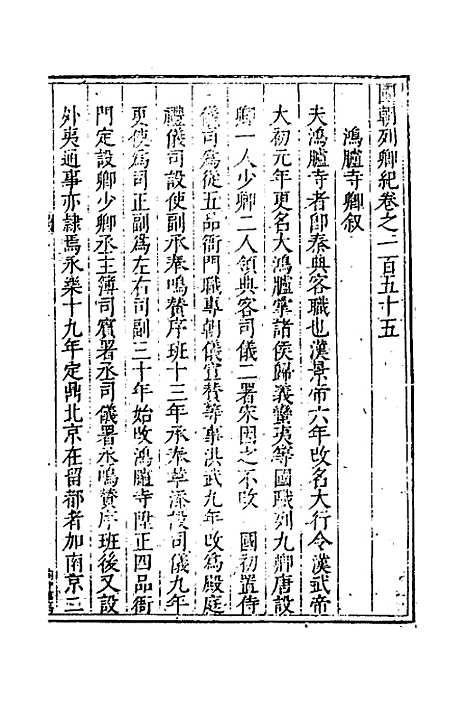 國朝列卿紀卷之一百五十五
鴻臚寺卿叙
夫鴻臚寺者卽秦典客職也漢景帝六年改名大行令漢武帝
大初元年更名大鴻臚掌諸侯歸義蠻夷等國職列九卿唐設
卿一人少卿二人領典客司儀二署宋因之不改 國初置侍
儀司爲從五品衙門職專朝儀宣賛等事洪武九年改爲殿庭
禮儀司設使副承奉鳴賛序班十三年承奉革添設司儀九年
更使爲司正副爲左右司副三十年始改鴻臚寺陞正四品衙
門定設卿少卿丞主簿司賓署丞司儀署丞鳴賛序班後又設
外夷通事亦隷焉永樂十九年定鼎北京在留都者加南京三